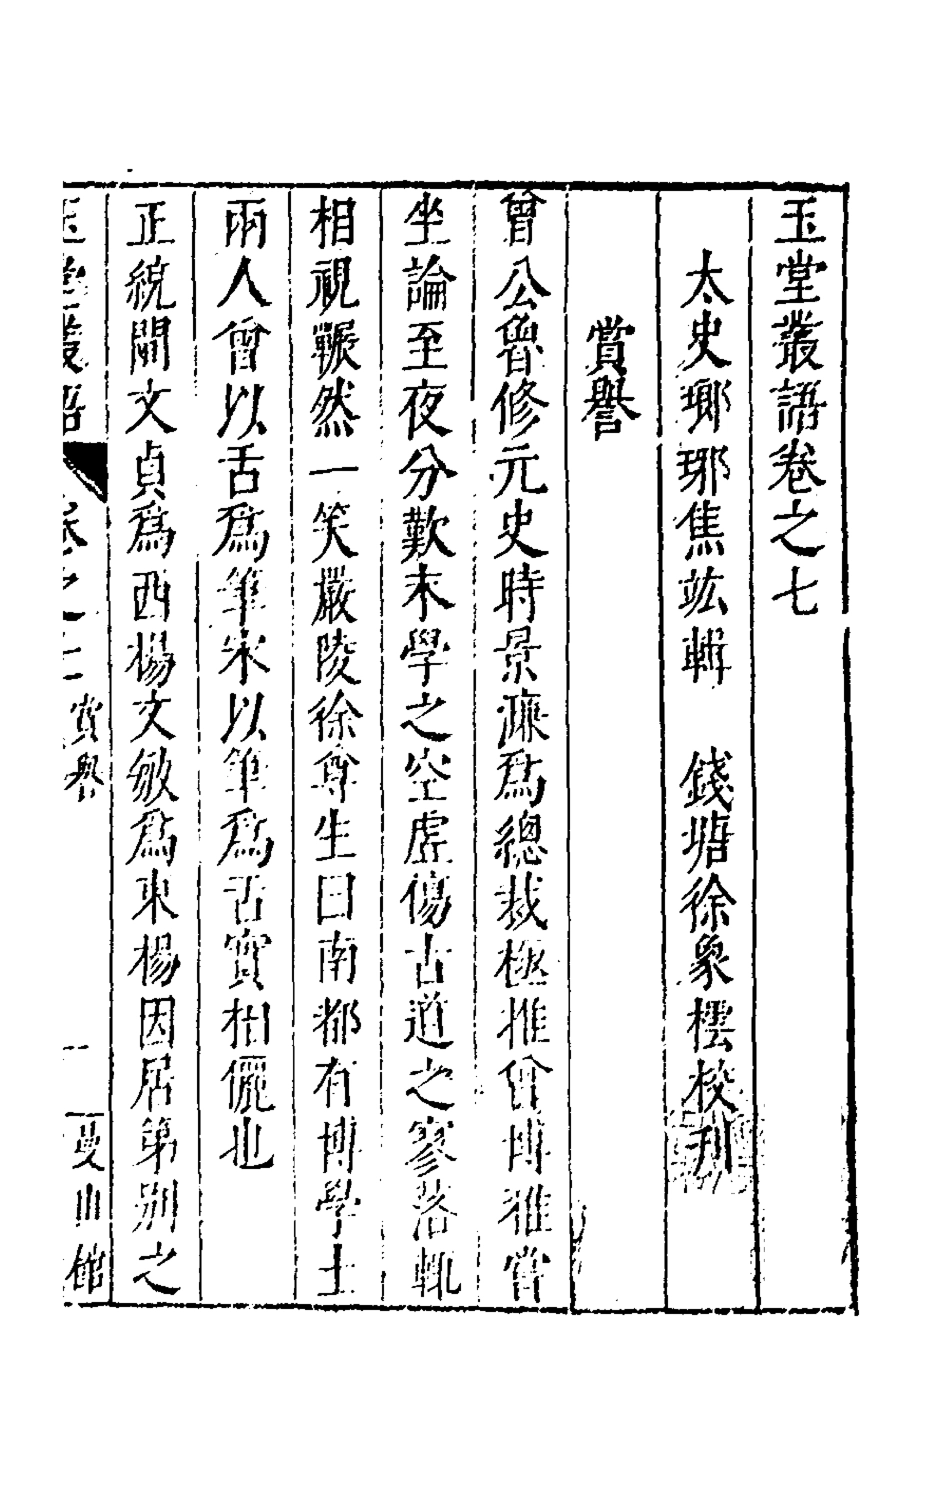 玉堂叢語卷之七
太史瑯琊焦竑輯　錢塘徐象橒校刊
賞譽
曾公魯修元史時景濂爲總裁極推曾博雅嘗
坐論至夜分歎末學之空虛傷古道之寥落輒
相視囅然一笑嚴陵徐尊生曰南都有博學士
兩人曾以舌爲筆宋以筆爲舌實相儷也
正統間文貞爲西楊文敏爲東楊因居第别之
玉堂叢語　卷之七　賞譽　一　曼山館